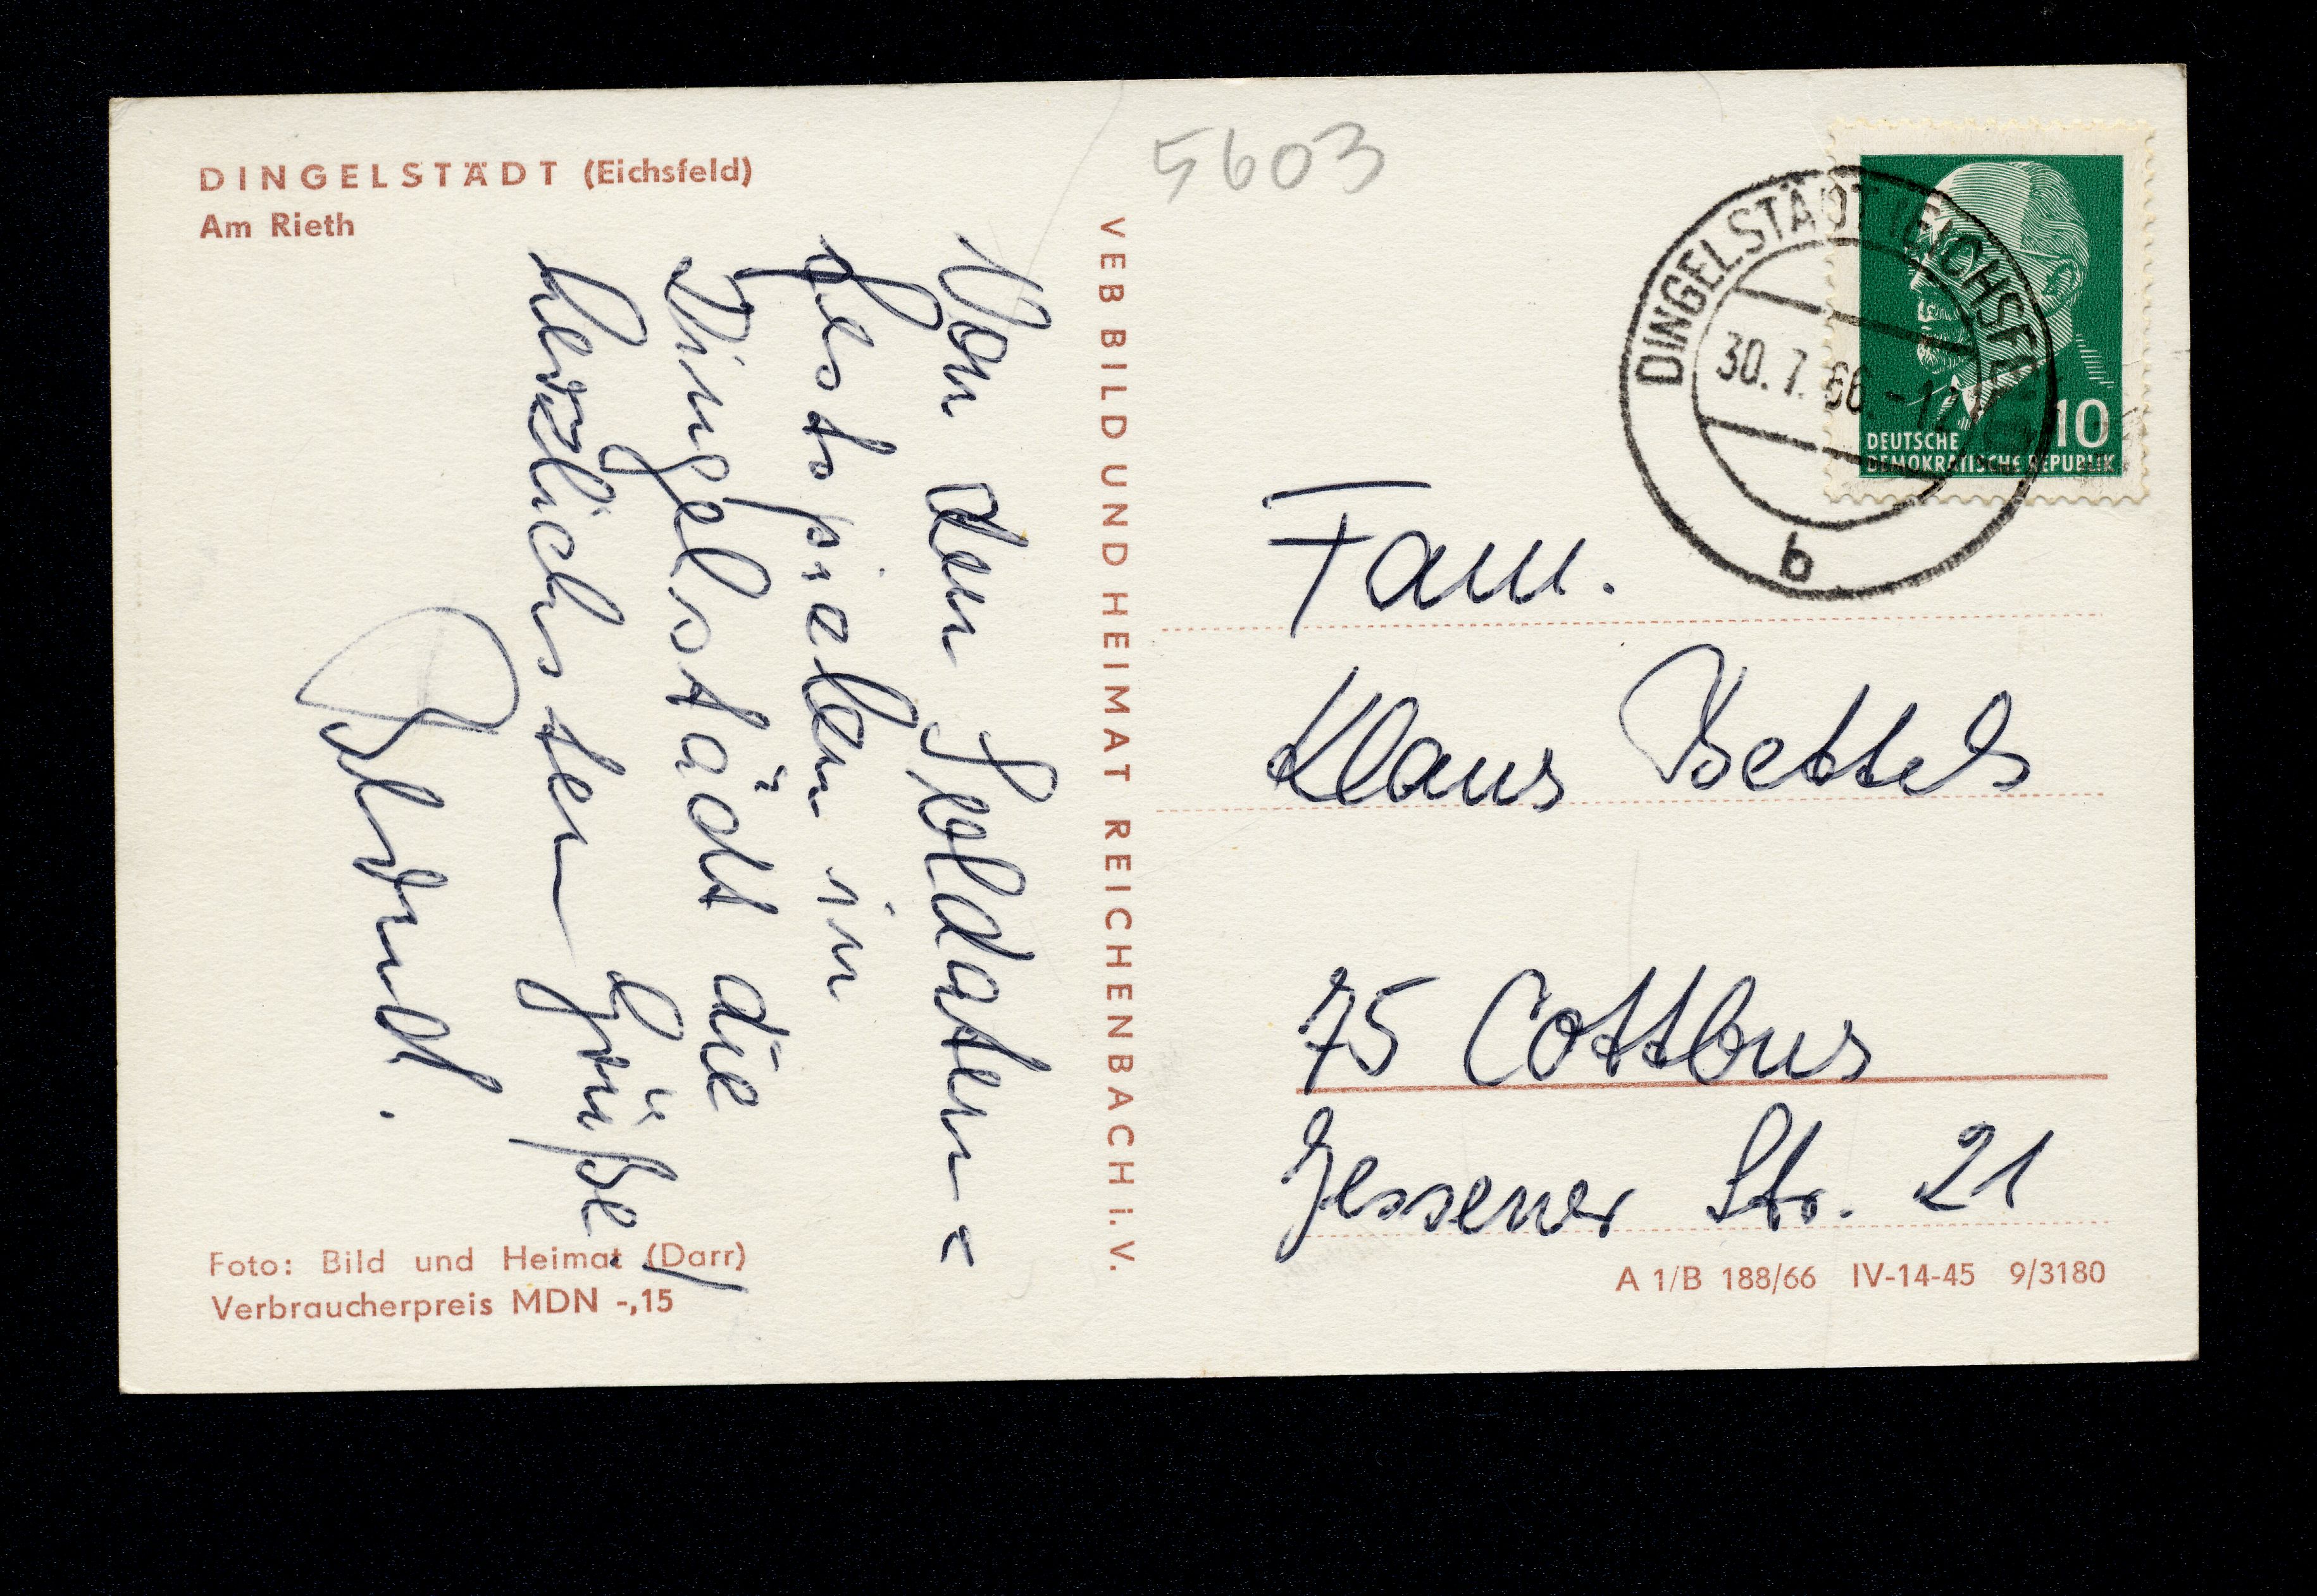 DINGELSTÄDT (Eichsfeld)
Am Rieth
Von den Soldaten=
festspielen in
Dingelstädt die
herzlichsten Grüße,
Foto: Bild und Heimat (Darr)
Verbraucherpreis MDN -,15
VEB BILD UND HEIMAT REICHENBACH i. V.
5603
DINGELSTÄDT (EICHSFELD)
30.7.66.
b
10
DEUTSCHE
DEMOKRATISCHE REPUBLIK
Fam.
Klaus Bettels
75 Cottbus
Jessener Str. 21
A 1/B 188/66 IV-14-45 9/3180